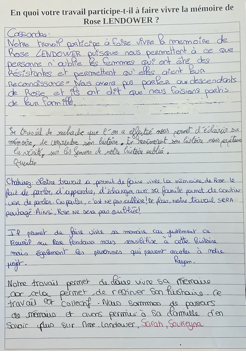 En quoi votre travail participe-t-il à faire vivre la mémoire de
Rose LENDOWER ?
Cassandra:
Notre travail participe à faire vivre la mémoire de
Rose LENDOWER puisque nous permettons à ce que
personne n'oublie les femmes qui ont été des
Résistantes et permettent qu'elles aient leur
reconnaissance. Nous avons pu parler aux descendants
de Rose et ils ont dit que nous faisions partis
de leur famille.
Ce travail de recherche que l'on a effectué nous permet d'éclairer sa
mémoire, de comprendre son histoire.
Quentin
notre travail a permis de faire vivre la mémoire de Rose. Le
fait de parler d'apprendre, d'échanger avec sa famille permet de
notre travail sera
partagé. Ainsi, Rose ne sera pas oubliée!
Il permet de faire vivre sa mémoire car
travail sur Rose Lendower nous
mais également les personnes qui auront accès à notre
projet.
Notre travail permet de faire vivre sa mémoire
car cela permet de retracer son histoire. Ce
travail est collectif. Nous sommes des passeurs
de mémoire et avons permis à sa famille d'en
savoir plus sur Rose Lendower. Sarah, Soumaya